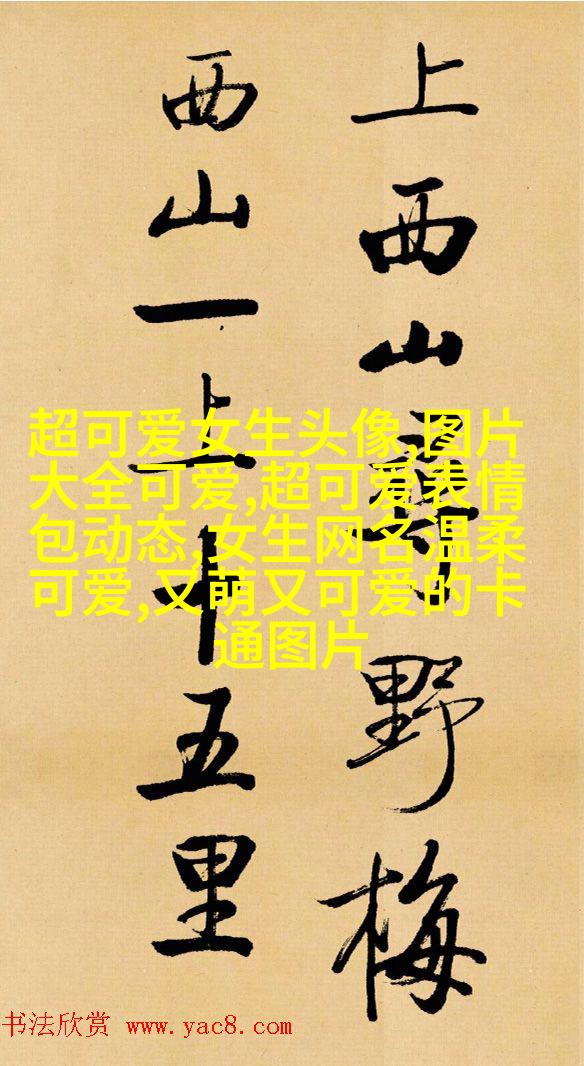 上西山尋野梅
西山一上十五里
超可爱女生头像,图片
大全可爱,超可爱表情
包动态,女生网名温柔
可爱,又萌又可爱的卡
通图片
书法欣赏 www.yac8.com